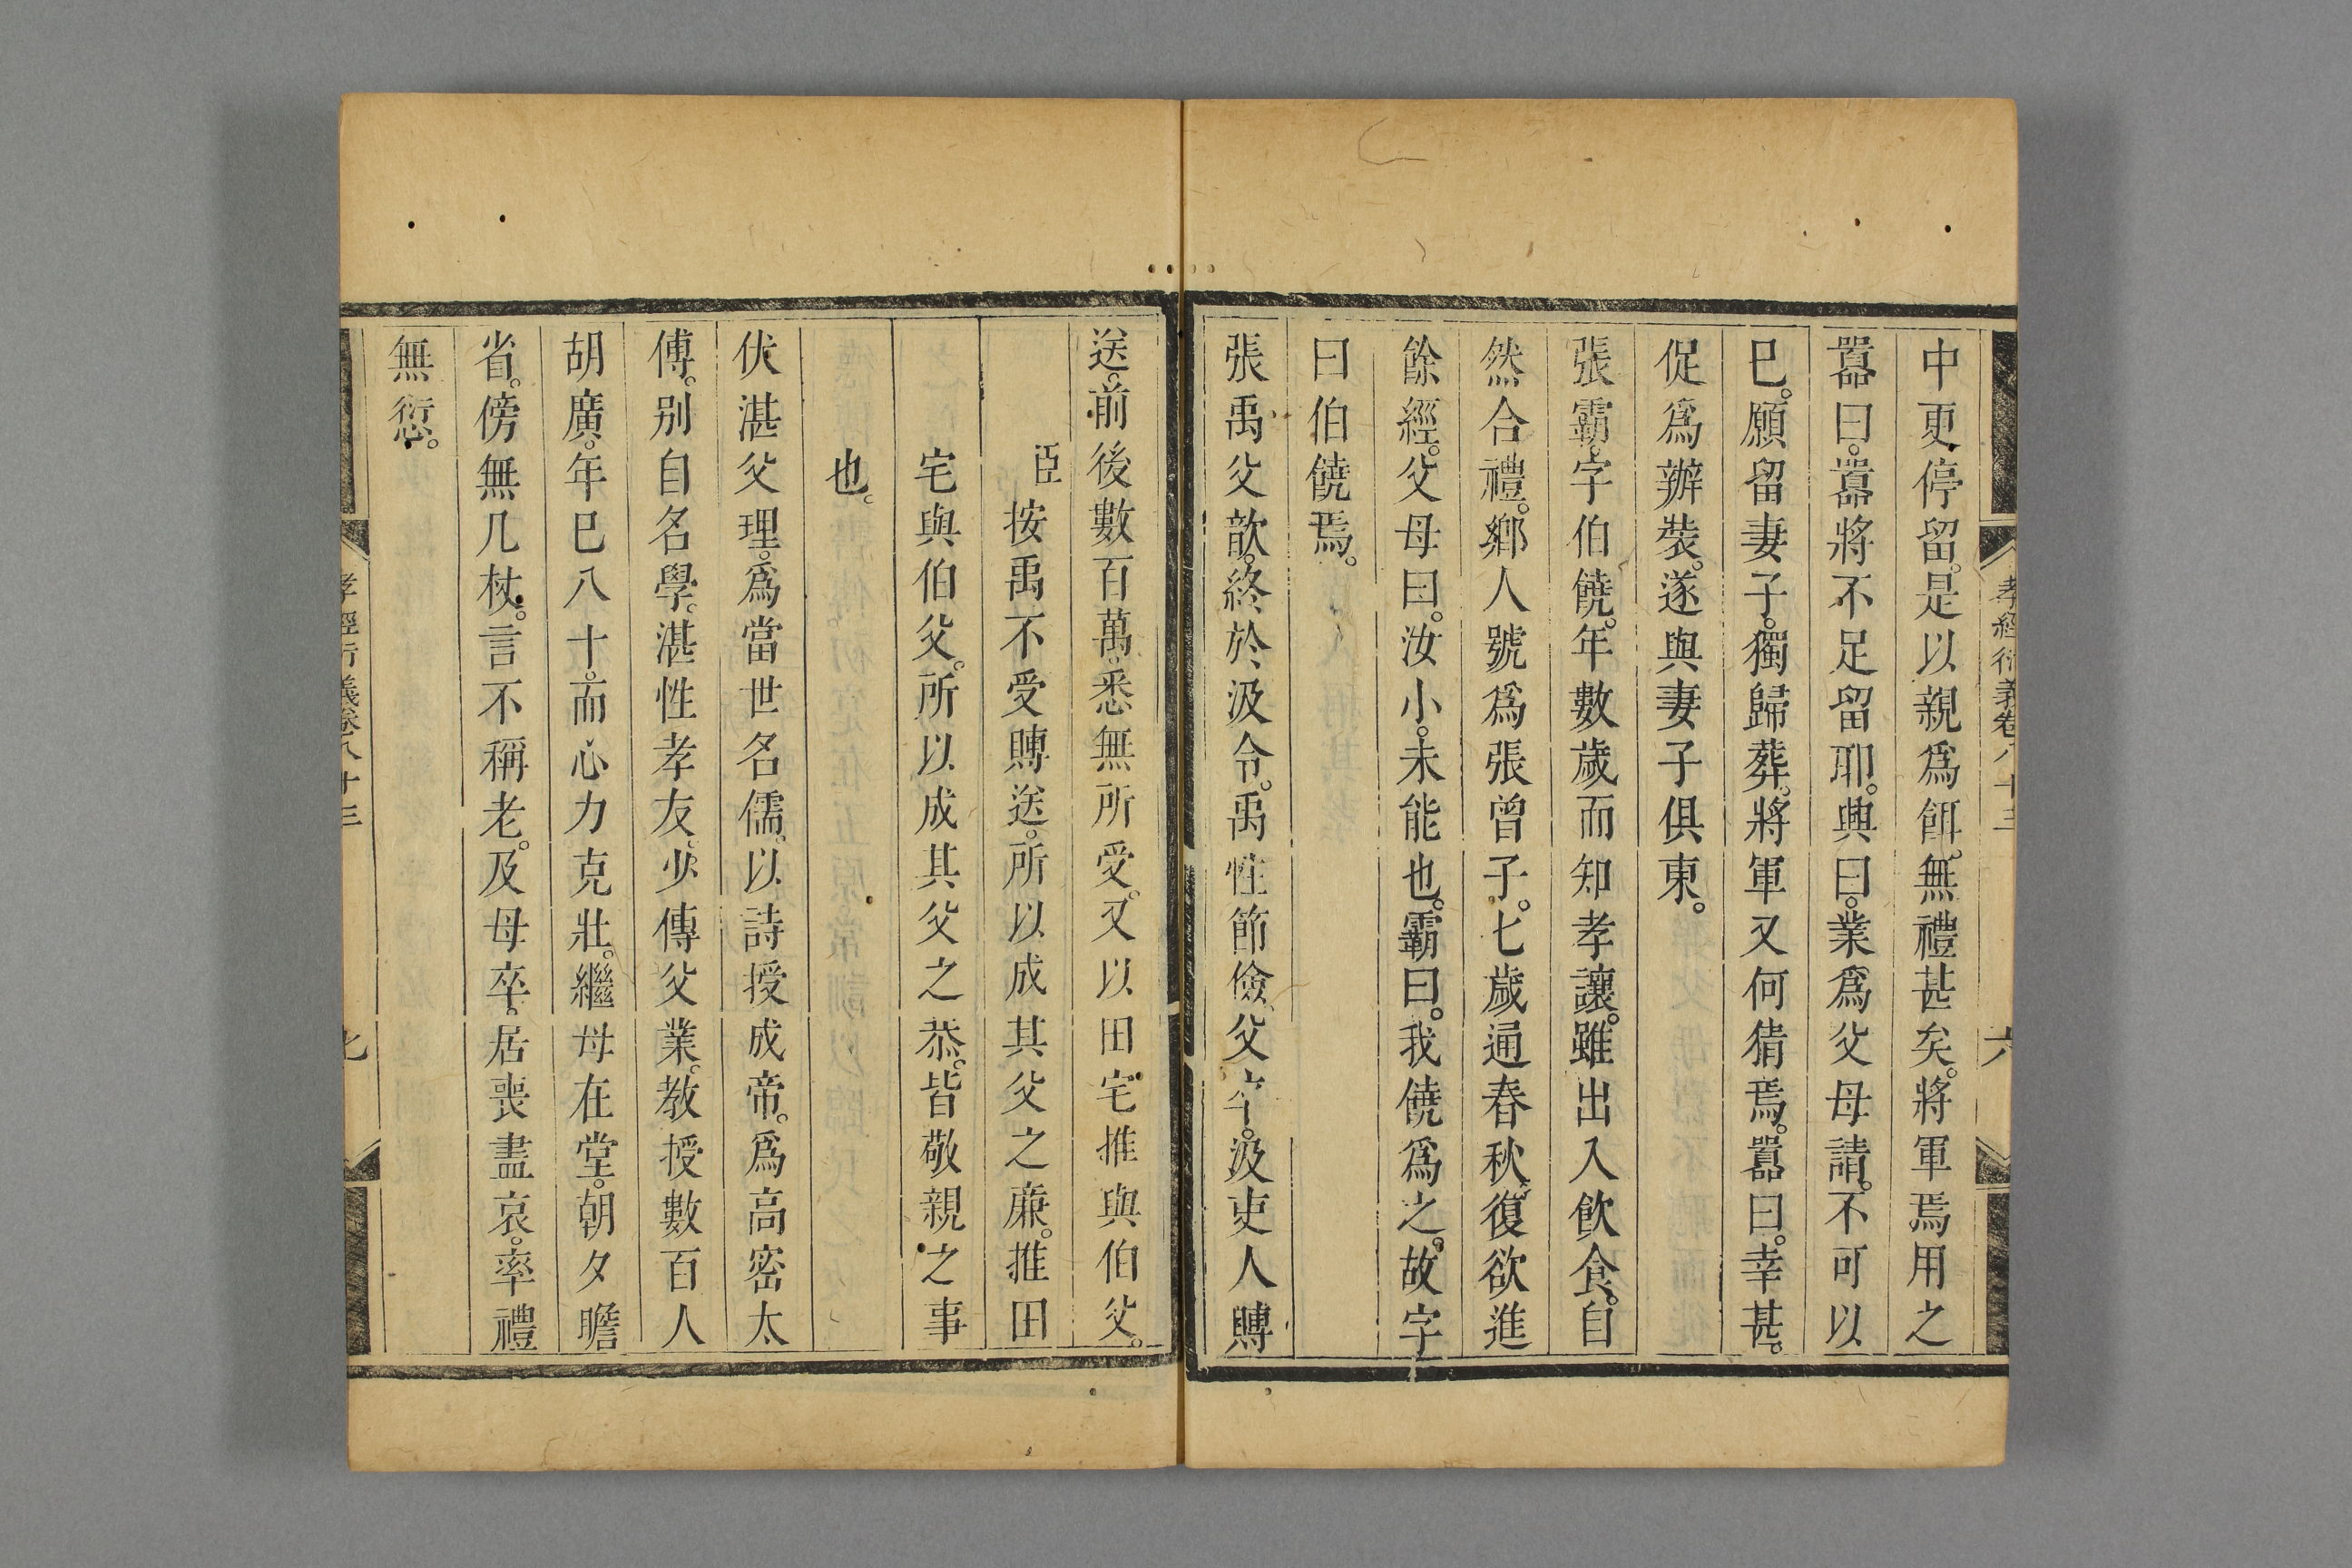 孝經衍義卷八十三
六
中更停留。是以親爲餌。無禮甚矣。將軍焉用之
囂曰。囂將不足留耶。興曰。業爲父母請。不可以
已。願留妻子。獨歸葬。將軍又何猜焉。囂曰。幸甚。
促爲辦裝。遂與妻子俱東。
張霸。字伯饒。年數歲而知孝讓。雖出入飲食。自
然合禮。鄉人號爲張曾子。七歲通春秋。復欲進
餘經。父母曰。汝小。未能也。霸曰。我饒爲之。故字
曰伯饒焉。
張禹父歆。終於汲令。禹性節儉。父卒。汲吏人賻
送。前後數百萬。悉無所受。又以田宅推與伯父。
臣按禹不受賻送。所以成其父之廉。推田
宅與伯父。所以成其父之恭。皆敬親之事
也。
伏湛父理。爲當世名儒。以詩授成帝。爲高密太
傅。別自名學。湛性孝友。少傳父業。教授數百人
胡廣。年巳八十。而心力克壯。繼母在堂。朝夕瞻
省。傍無几杖。言不稱老。及母卒。居喪盡哀。率禮
無愆。
孝經衍義卷八十三
七